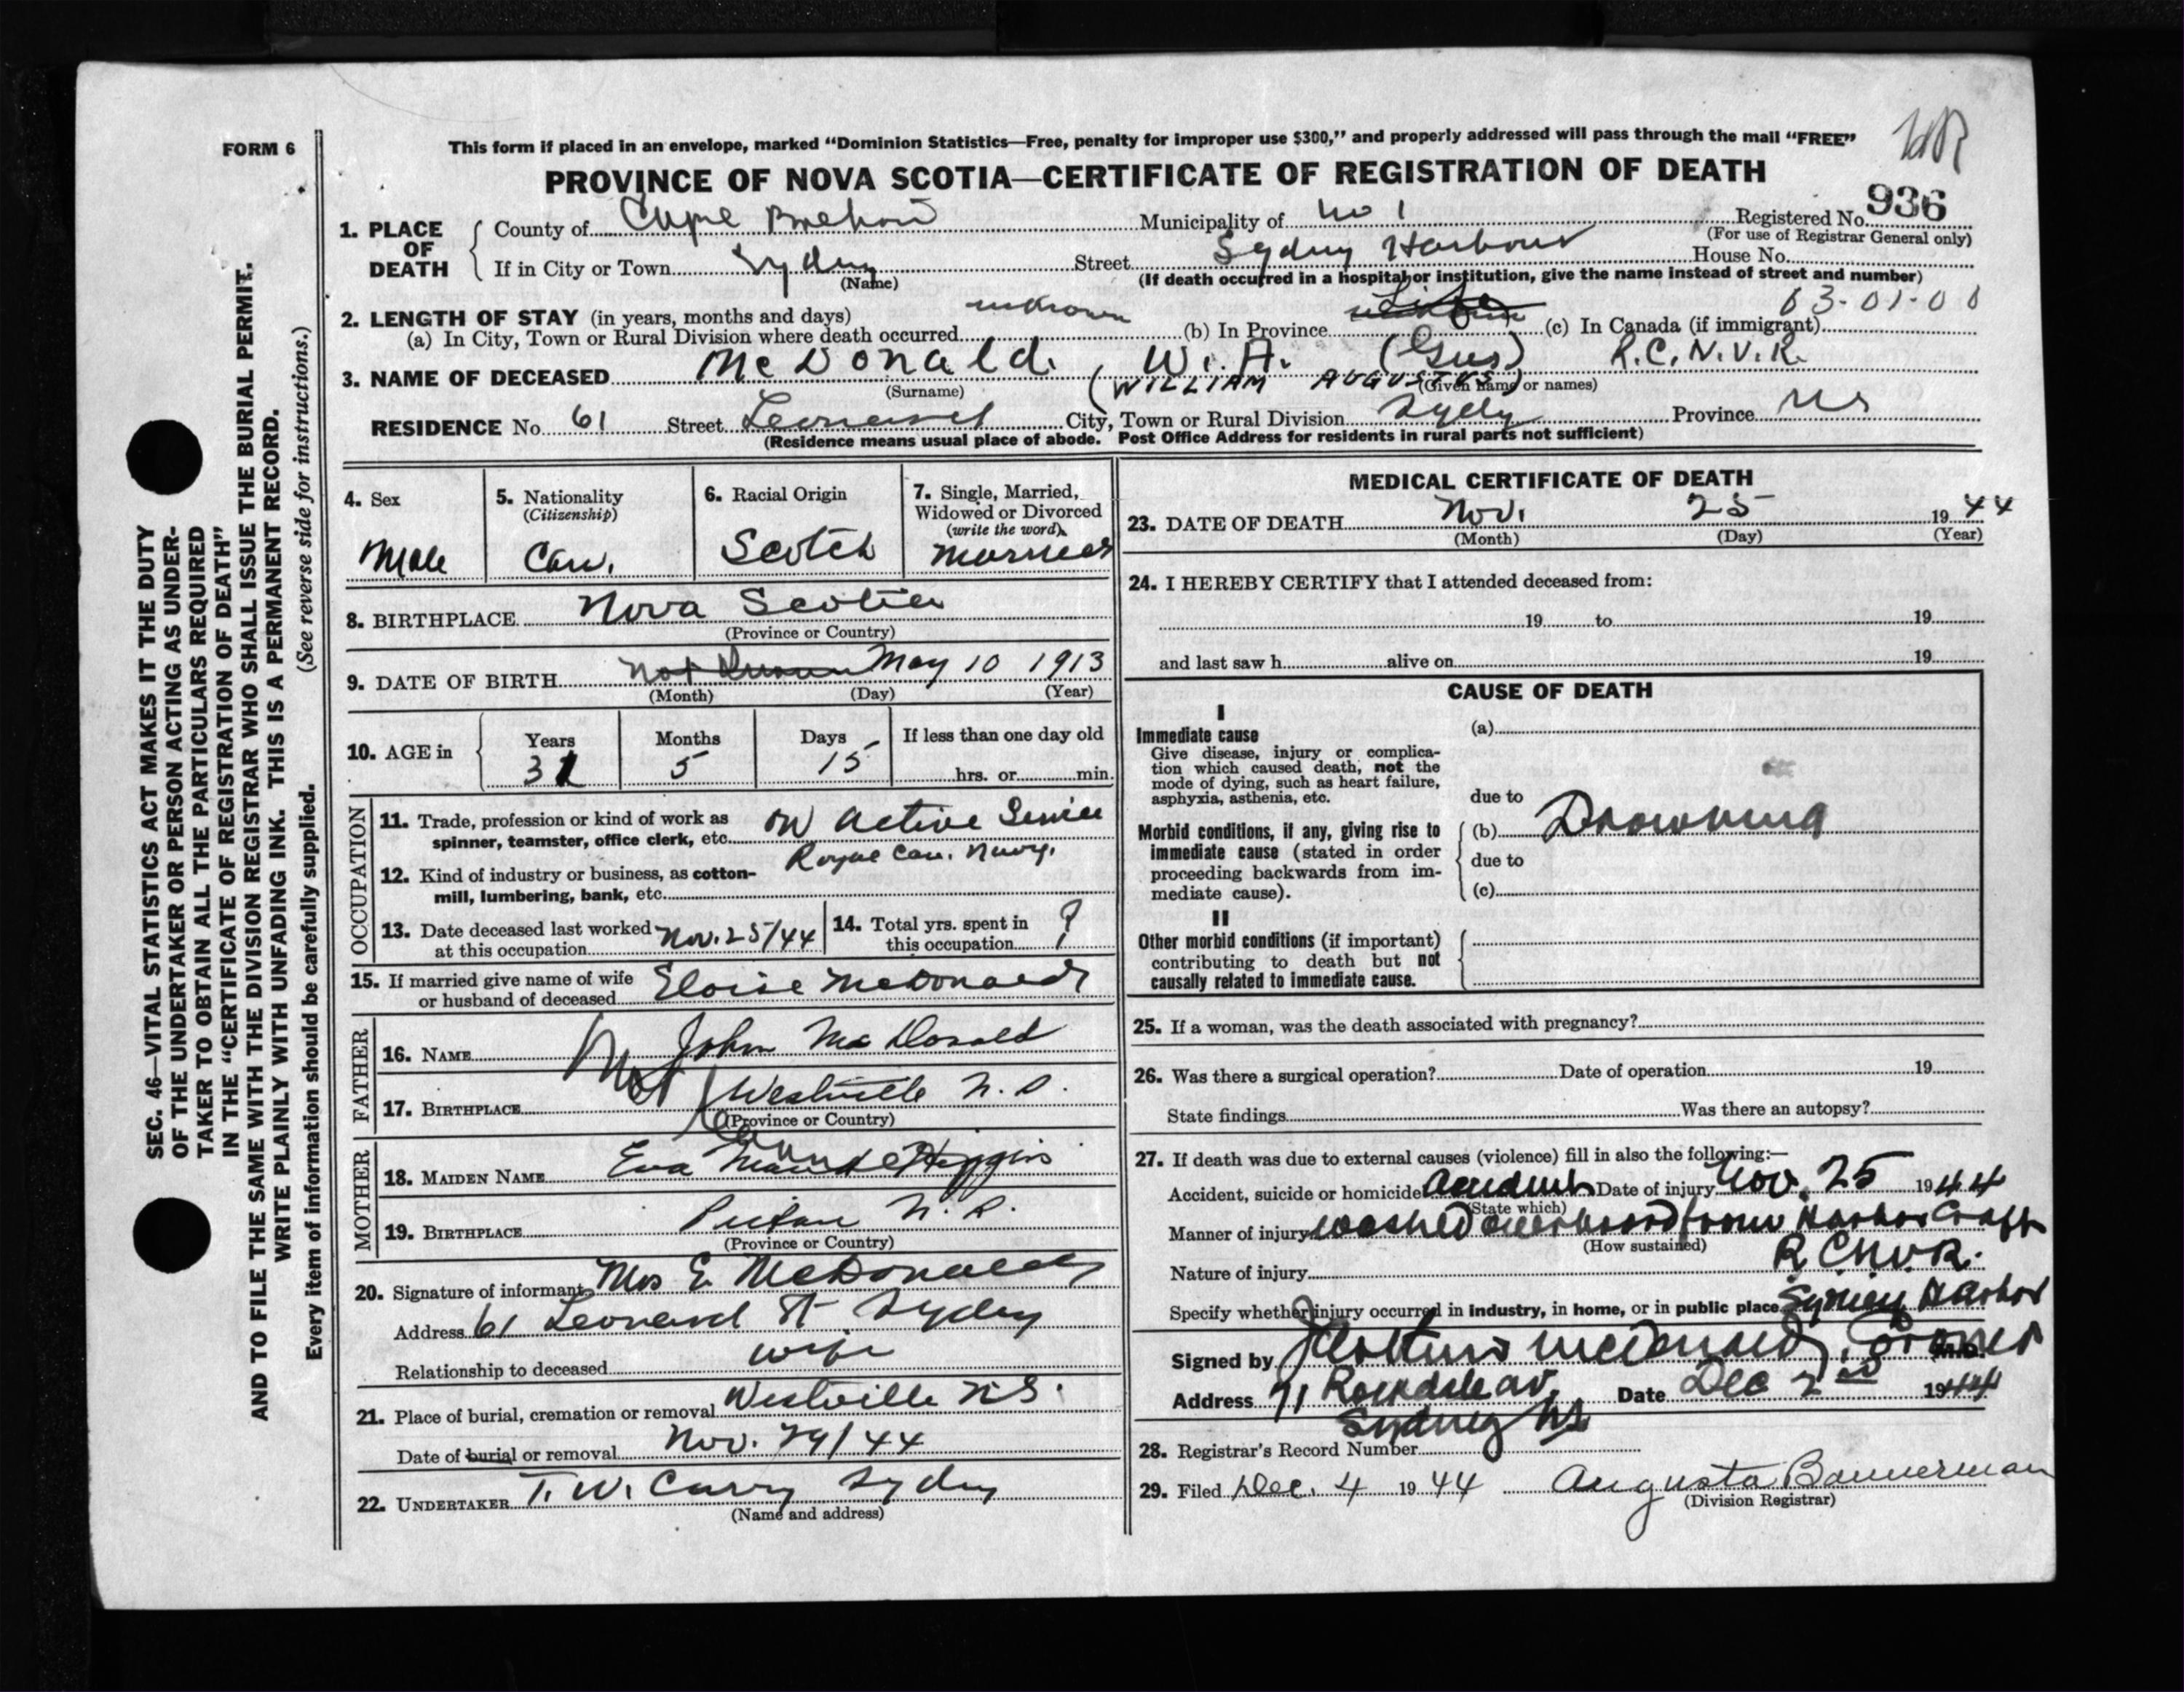 FORM 6
This form if placed in an envelope, marked "Dominion Statistics—Free, penalty for improper use $300," and properly addressed will pass through the mail "FREE"
PROVINCE OF NOVA SCOTIA—CERTIFICATE OF REGISTRATION OF DEATH
936
1. PLACE OF DEATH County of Cape Breton Municipality of No 1 Registered No.
(For use of Registrar General only)
If in City or Town Sydney Street Sydney Harbour House No.
(Name) (If death occurred in a hospital or institution, give the name instead of street and number)
2. LENGTH OF STAY (in years, months and days) 03-01-01
(a) In City, Town or Rural Division where death occurred unknown (b) In Province Life (c) In Canada (if immigrant)
3. NAME OF DECEASED McDonald W. A. (Gus) R.C.N.V.R.
(Surname) (WILLIAM AUGUSTUS) (Given name or names)
RESIDENCE No. 61 Street Leonard City, Town or Rural Division Sydney Province NS
(Residence means usual place of abode. Post Office Address for residents in rural parts not sufficient)
4. Sex
Male
5. Nationality
(Citizenship)
Can.
6. Racial Origin
Scotch
7. Single, Married, Widowed or Divorced
(write the word)
Married
8. BIRTHPLACE Nova Scotia
(Province or Country)
9. DATE OF BIRTH Not Known May 10 1913
(Month) (Day) (Year)
10. AGE in Years Months Days If less than one day old
31 5 15 hrs. or min.
OCCUPATION
11. Trade, profession or kind of work as spinner, teamster, office clerk, etc. on Active Service
Royal Can. Navy.
12. Kind of industry or business, as cotton-mill, lumbering, bank, etc.
13. Date deceased last worked at this occupation Nov. 25/44
14. Total yrs. spent in this occupation ?
15. If married give name of wife or husband of deceased Eloise McDonald
FATHER
16. NAME John MacDonald
17. BIRTHPLACE Westville N.S.
(Province or Country)
MOTHER
18. MAIDEN NAME Eva Maude Higgins
19. BIRTHPLACE Pictou N.S.
(Province or Country)
20. Signature of informant Mrs E. McDonald
Address 61 Leonard St. Sydney
Relationship to deceased wife
21. Place of burial, cremation or removal Westville N.S.
Date of burial or removal Nov. 29/44
22. UNDERTAKER T. W. Curry Sydney
(Name and address)
MEDICAL CERTIFICATE OF DEATH
23. DATE OF DEATH Nov. 25 1944
(Month) (Day) (Year)
24. I HEREBY CERTIFY that I attended deceased from:
19 to 19
and last saw h alive on 19
CAUSE OF DEATH
I
Immediate cause
Give disease, injury or complication which caused death, not the mode of dying, such as heart failure, asphyxia, asthenia, etc.
(a)
due to
Morbid conditions, if any, giving rise to immediate cause (stated in order proceeding backwards from immediate cause).
(b) Drowning
due to
(c)
II
Other morbid conditions (if important) contributing to death but not causally related to immediate cause.
25. If a woman, was the death associated with pregnancy?
26. Was there a surgical operation? Date of operation 19
State findings Was there an autopsy?
27. If death was due to external causes (violence) fill in also the following:—
Accident, suicide or homicide Accident Date of injury Nov. 25 1944
(State which)
Manner of injury washed overboard from Harbor Craft
(How sustained) R.C.N.V.R.
Nature of injury
Specify whether injury occurred in industry, in home, or in public place Sydney Harbor
Signed by McDonald, Coroner M.D.
Address 71 Rockdale av. Date Dec 2nd 1944
Sydney NS
28. Registrar's Record Number
29. Filed Dec. 4 1944 Augusta Bannerman
(Division Registrar)
SEC. 46—VITAL STATISTICS ACT MAKES IT THE DUTY
OF THE UNDERTAKER OR PERSON ACTING AS UNDER-
TAKER TO OBTAIN ALL THE PARTICULARS REQUIRED
IN THE "CERTIFICATE OF REGISTRATION OF DEATH"
AND TO FILE THE SAME WITH THE DIVISION REGISTRAR WHO SHALL ISSUE THE BURIAL PERMIT.
WRITE PLAINLY WITH UNFADING INK. THIS IS A PERMANENT RECORD.
Every item of information should be carefully supplied. (See reverse side for instructions.)